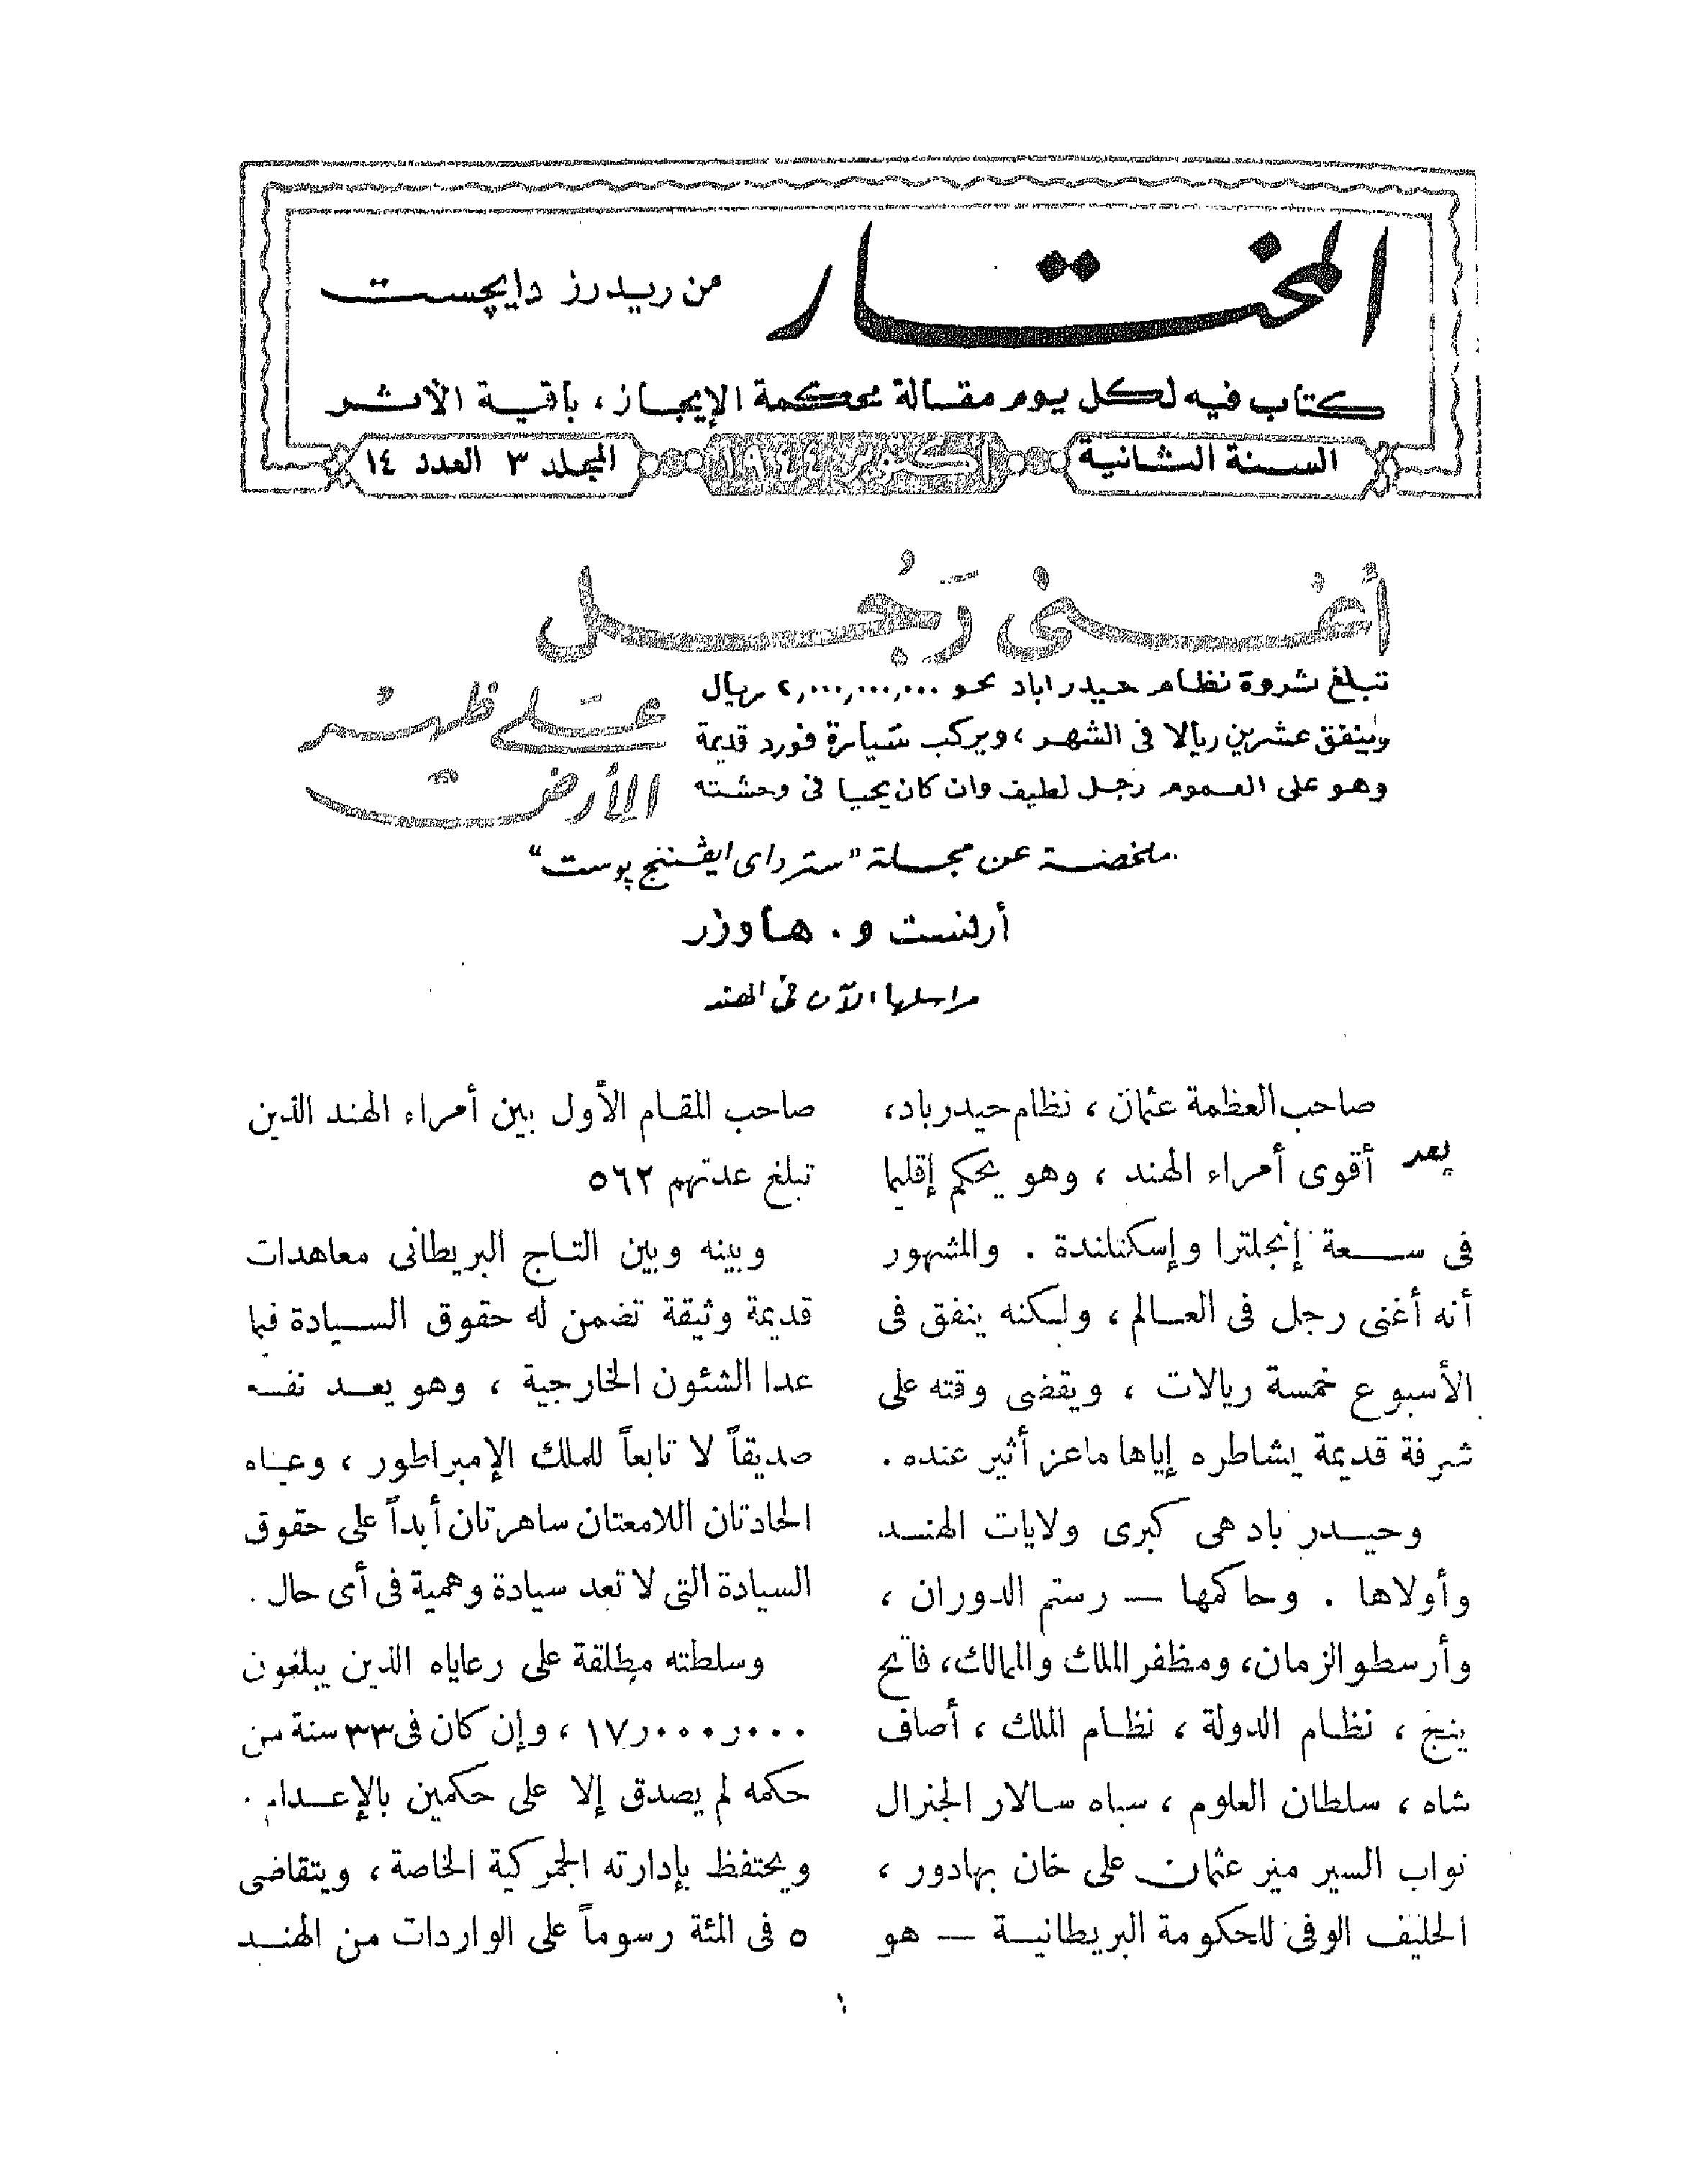 المختار
من ريدرز دايجست
كتاب فيه لكل يوم مقالة محكمة الإيجاز، باقية الأثر
السنة الثانية
أكتوبر ١٩٤٤
المجلد ٣ العدد ١٤
أغنى رَجُل
عَلى ظهر
الأرض
تبلغ ثروة نظام حيدراباد نحو ٢,٠٠٠,٠٠٠,٠٠٠ ريال
وينفق عشرين ريالا فى الشهر، ويركب سيارة فورد قديمة
وهو على العموم رجل لطيف وان كان يحيا فى وحشته
ملخصة عن مجلة "ستردای ایڤننج پوست"
أرنست و. هاوزر
مراسلها الآن فى الهند
يعد
صاحب العظمة عثمان ، نظام حيدرباد،
أقوى أمراء الهند ، وهو يحكم إقليما
فى سعة إنجلترا وإسكتلندة . والمشهور
أنه أغنى رجل فى العالم ، ولكنه ينفق فى
الأسبوع خمسة ريالات ، ويقضى وقته على
شرفة قديمة يشاطره إياها ماعز أثير عنده .
وحيدر باد هى كبرى ولايات الهند
وأولاها . وحاكمها — رستم الدوران ،
وأرسطو الزمان، ومظفر الملك والممالك، فاتح
ينج ، نظام الدولة ، نظام الملك ، أصاف
شاه ، سلطان العلوم ، سباه سالار الجنرال
نواب السير منير عثمان على خان بهادور ،
الحليف الوفى للحكومة البريطانية — هو
صاحب المقام الأول بين أمراء الهند الذين
تبلغ عدتهم ٥٦٢
وبينه وبين التاج البريطانى معاهدات
قديمة وثيقة تضمن له حقوق السيادة فيما
عدا الشئون الخارجية ، وهو يعد نفسه
صديقاً لا تابعاً للملك الإمبراطور ، وعيناه
الحادتان اللامعتان ساهرتان أبداً على حقوق
السيادة التى لا تعد سيادة وهمية فى أى حال .
وسلطته مطلقة على رعاياه الذين يبلغون
١٧ر٠٠٠ر٠٠٠ ، وإن كان فى ٣٣ سنة من
حكمه لم يصدق إلا على حكمين بالإعدام .
ويحتفظ بإدارته الجمركية الخاصة ، ويتقاضى
٥ فى المئة رسوماً على الواردات من الهند
١